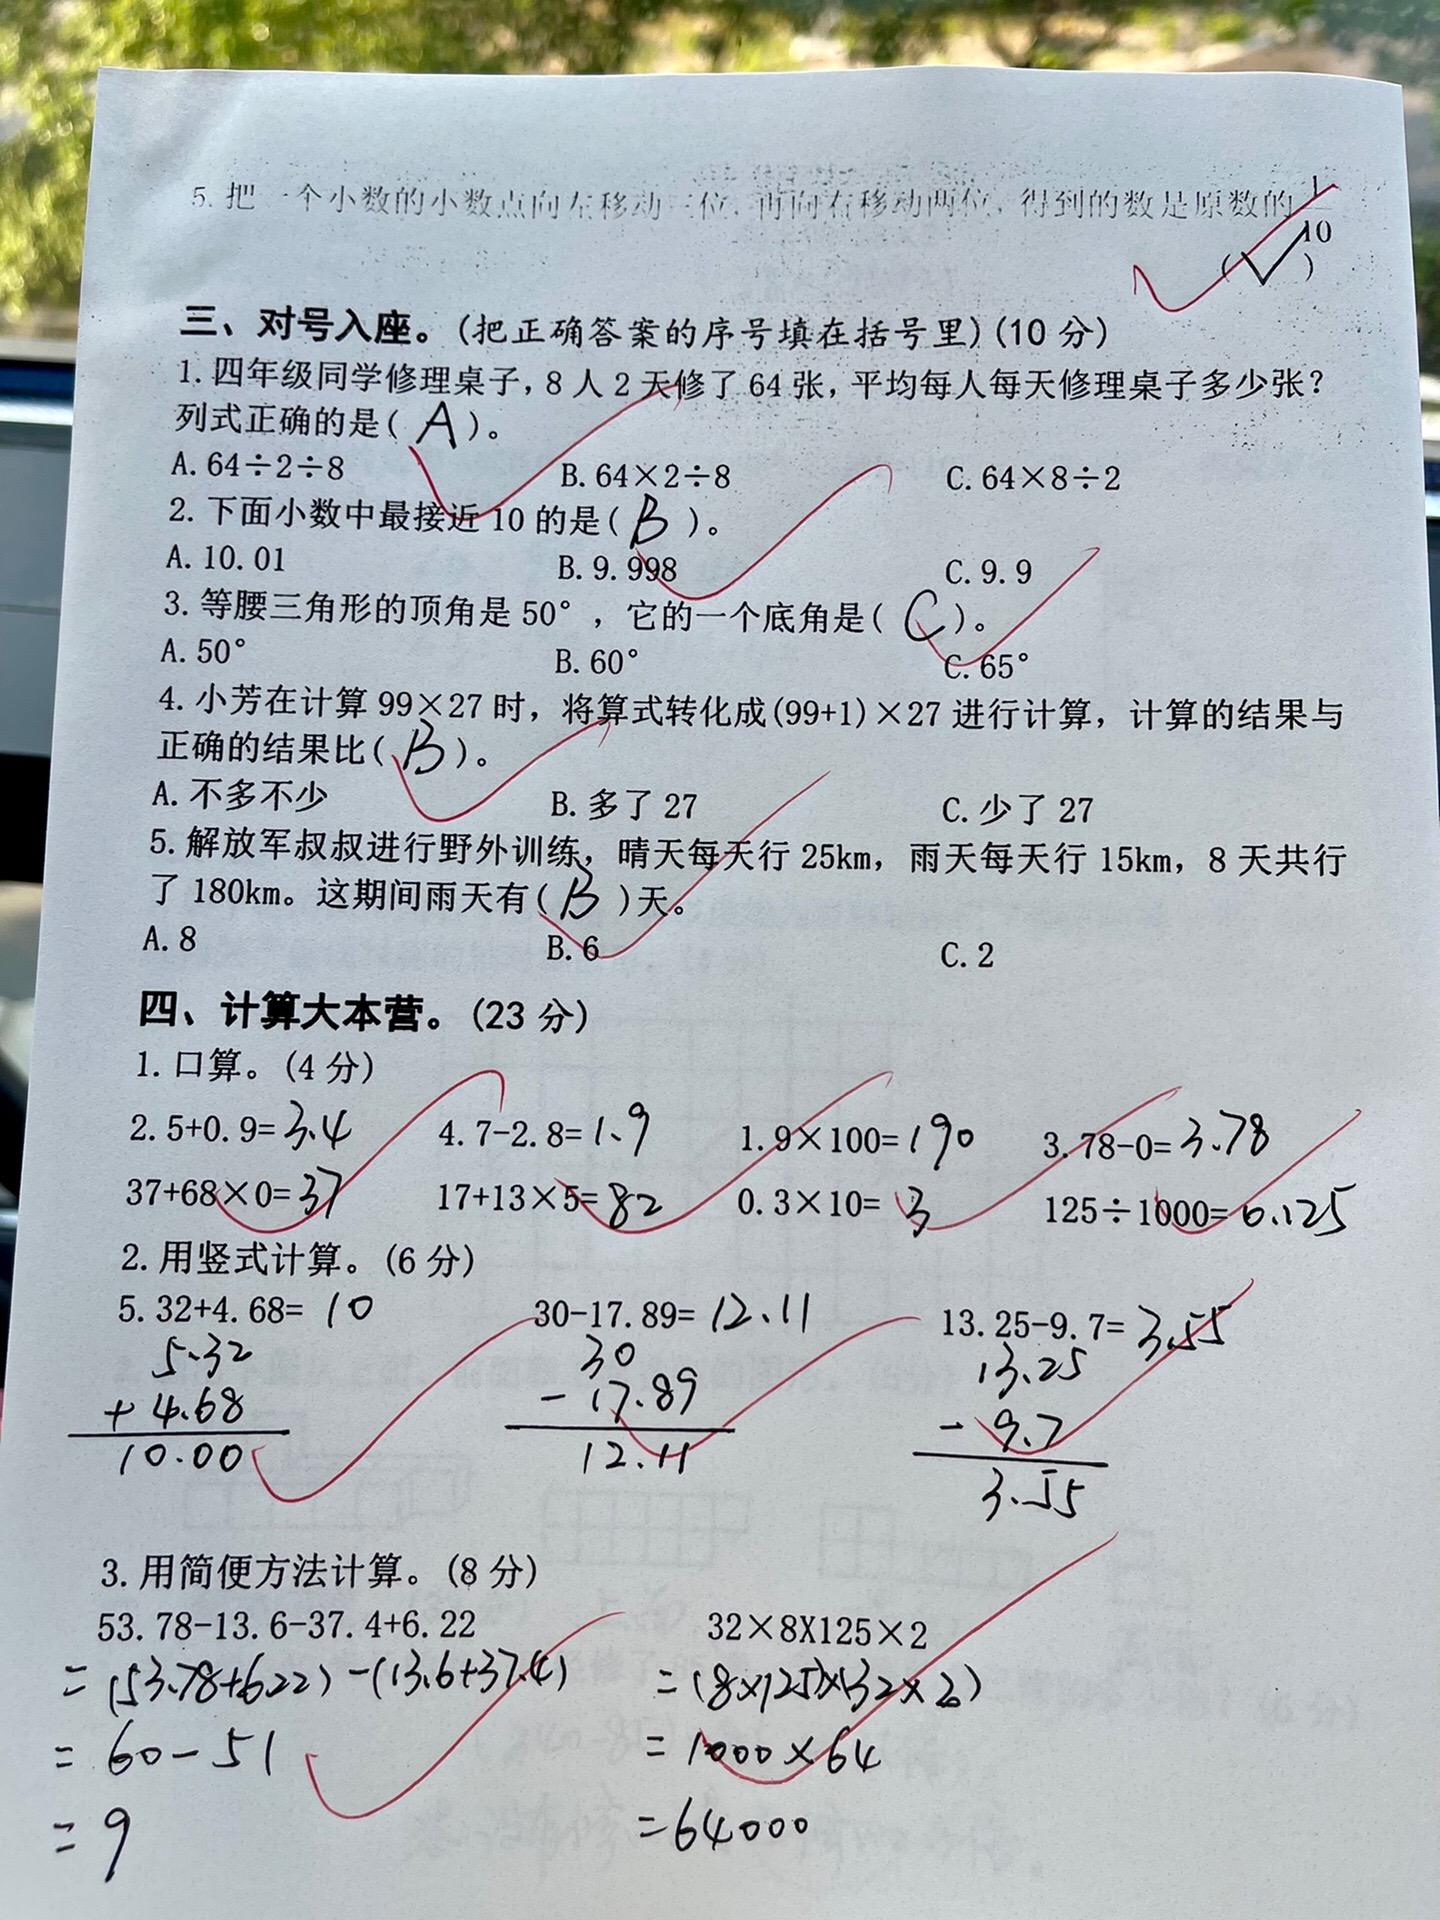 5. 把一个小数的小数点向左移动三位，再向右移动两位，得到的数是原数的1/10
(√)
三、对号入座。(把正确答案的序号填在括号里)(10 分)
1. 四年级同学修理桌子，8 人 2 天修了 64 张，平均每人每天修理桌子多少张？
列式正确的是( A )。
A. 64÷2÷8 B. 64×2÷8 C. 64×8÷2
2. 下面小数中最接近 10 的是( B )。
A. 10.01 B. 9.998 C. 9.9
3. 等腰三角形的顶角是 50°，它的一个底角是( C )。
A. 50° B. 60° C. 65°
4. 小芳在计算 99×27 时，将算式转化成(99+1)×27 进行计算，计算的结果与
正确的结果比( B )。
A. 不多不少 B. 多了 27 C. 少了 27
5. 解放军叔叔进行野外训练，晴天每天行 25km，雨天每天行 15km，8 天共行
了 180km。这期间雨天有( B )天。
A. 8 B. 6 C. 2
四、计算大本营。(23 分)
1. 口算。(4 分)
2.5+0.9=3.4 4.7-2.8=1.9 1.9×100=190 3.78-0=3.78
37+68×0=37 17+13×5=82 0.3×10=3 125÷1000=0.125
2. 用竖式计算。(6 分)
5.32+4.68=10 30-17.89=12.11 13.25-9.7=3.55
5.32 30 13.25
+4.68 -17.89 -9.7
10.00 12.11 3.55
3. 用简便方法计算。(8 分)
53.78-13.6-37.4+6.22 32×8X125×2
=(53.78+6.22)-(13.6+37.4) =(8×125)×(32×2)
=60-51 =1000×64
=9 =64000